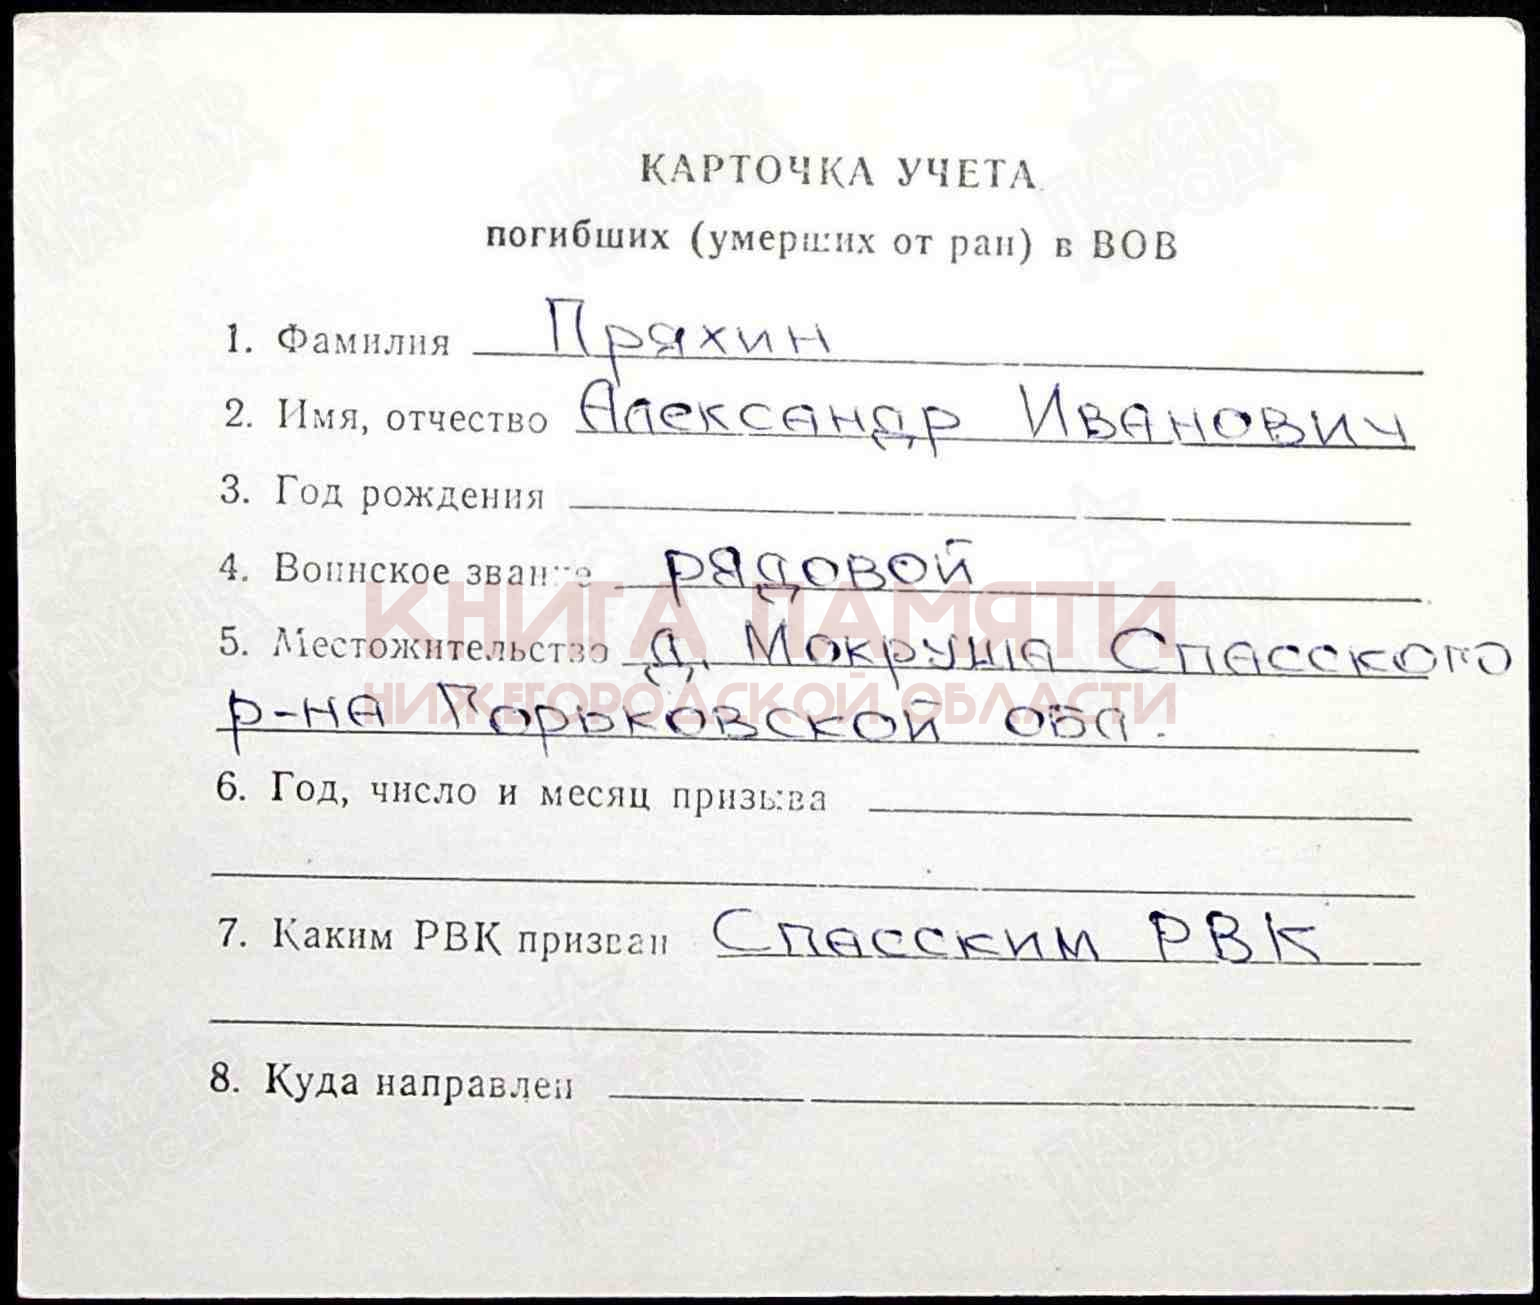 КАРТОЧКА УЧЕТА
погибших (умерших от ран) в ВОВ
1. Фамилия Пряхин
2. Имя, отчество Александр Иванович
3. Год рождения
4. Воинское звание рядовой
КНИГА ПАМЯТИ
5. Местожительство д. Мокруша Спасского
НИЖЕГОРОДСКОЙ ОБЛАСТИ
р-на Горьковской обл.
6. Год, число и месяц призыва
7. Каким РВК призван Спасским РВК
8. Куда направлен